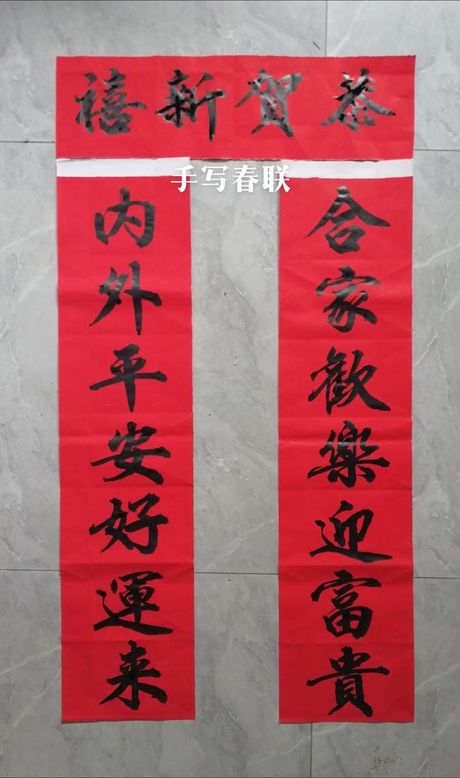 恭賀新禧
手写春联
合家歡樂迎富貴
内外平安好運来